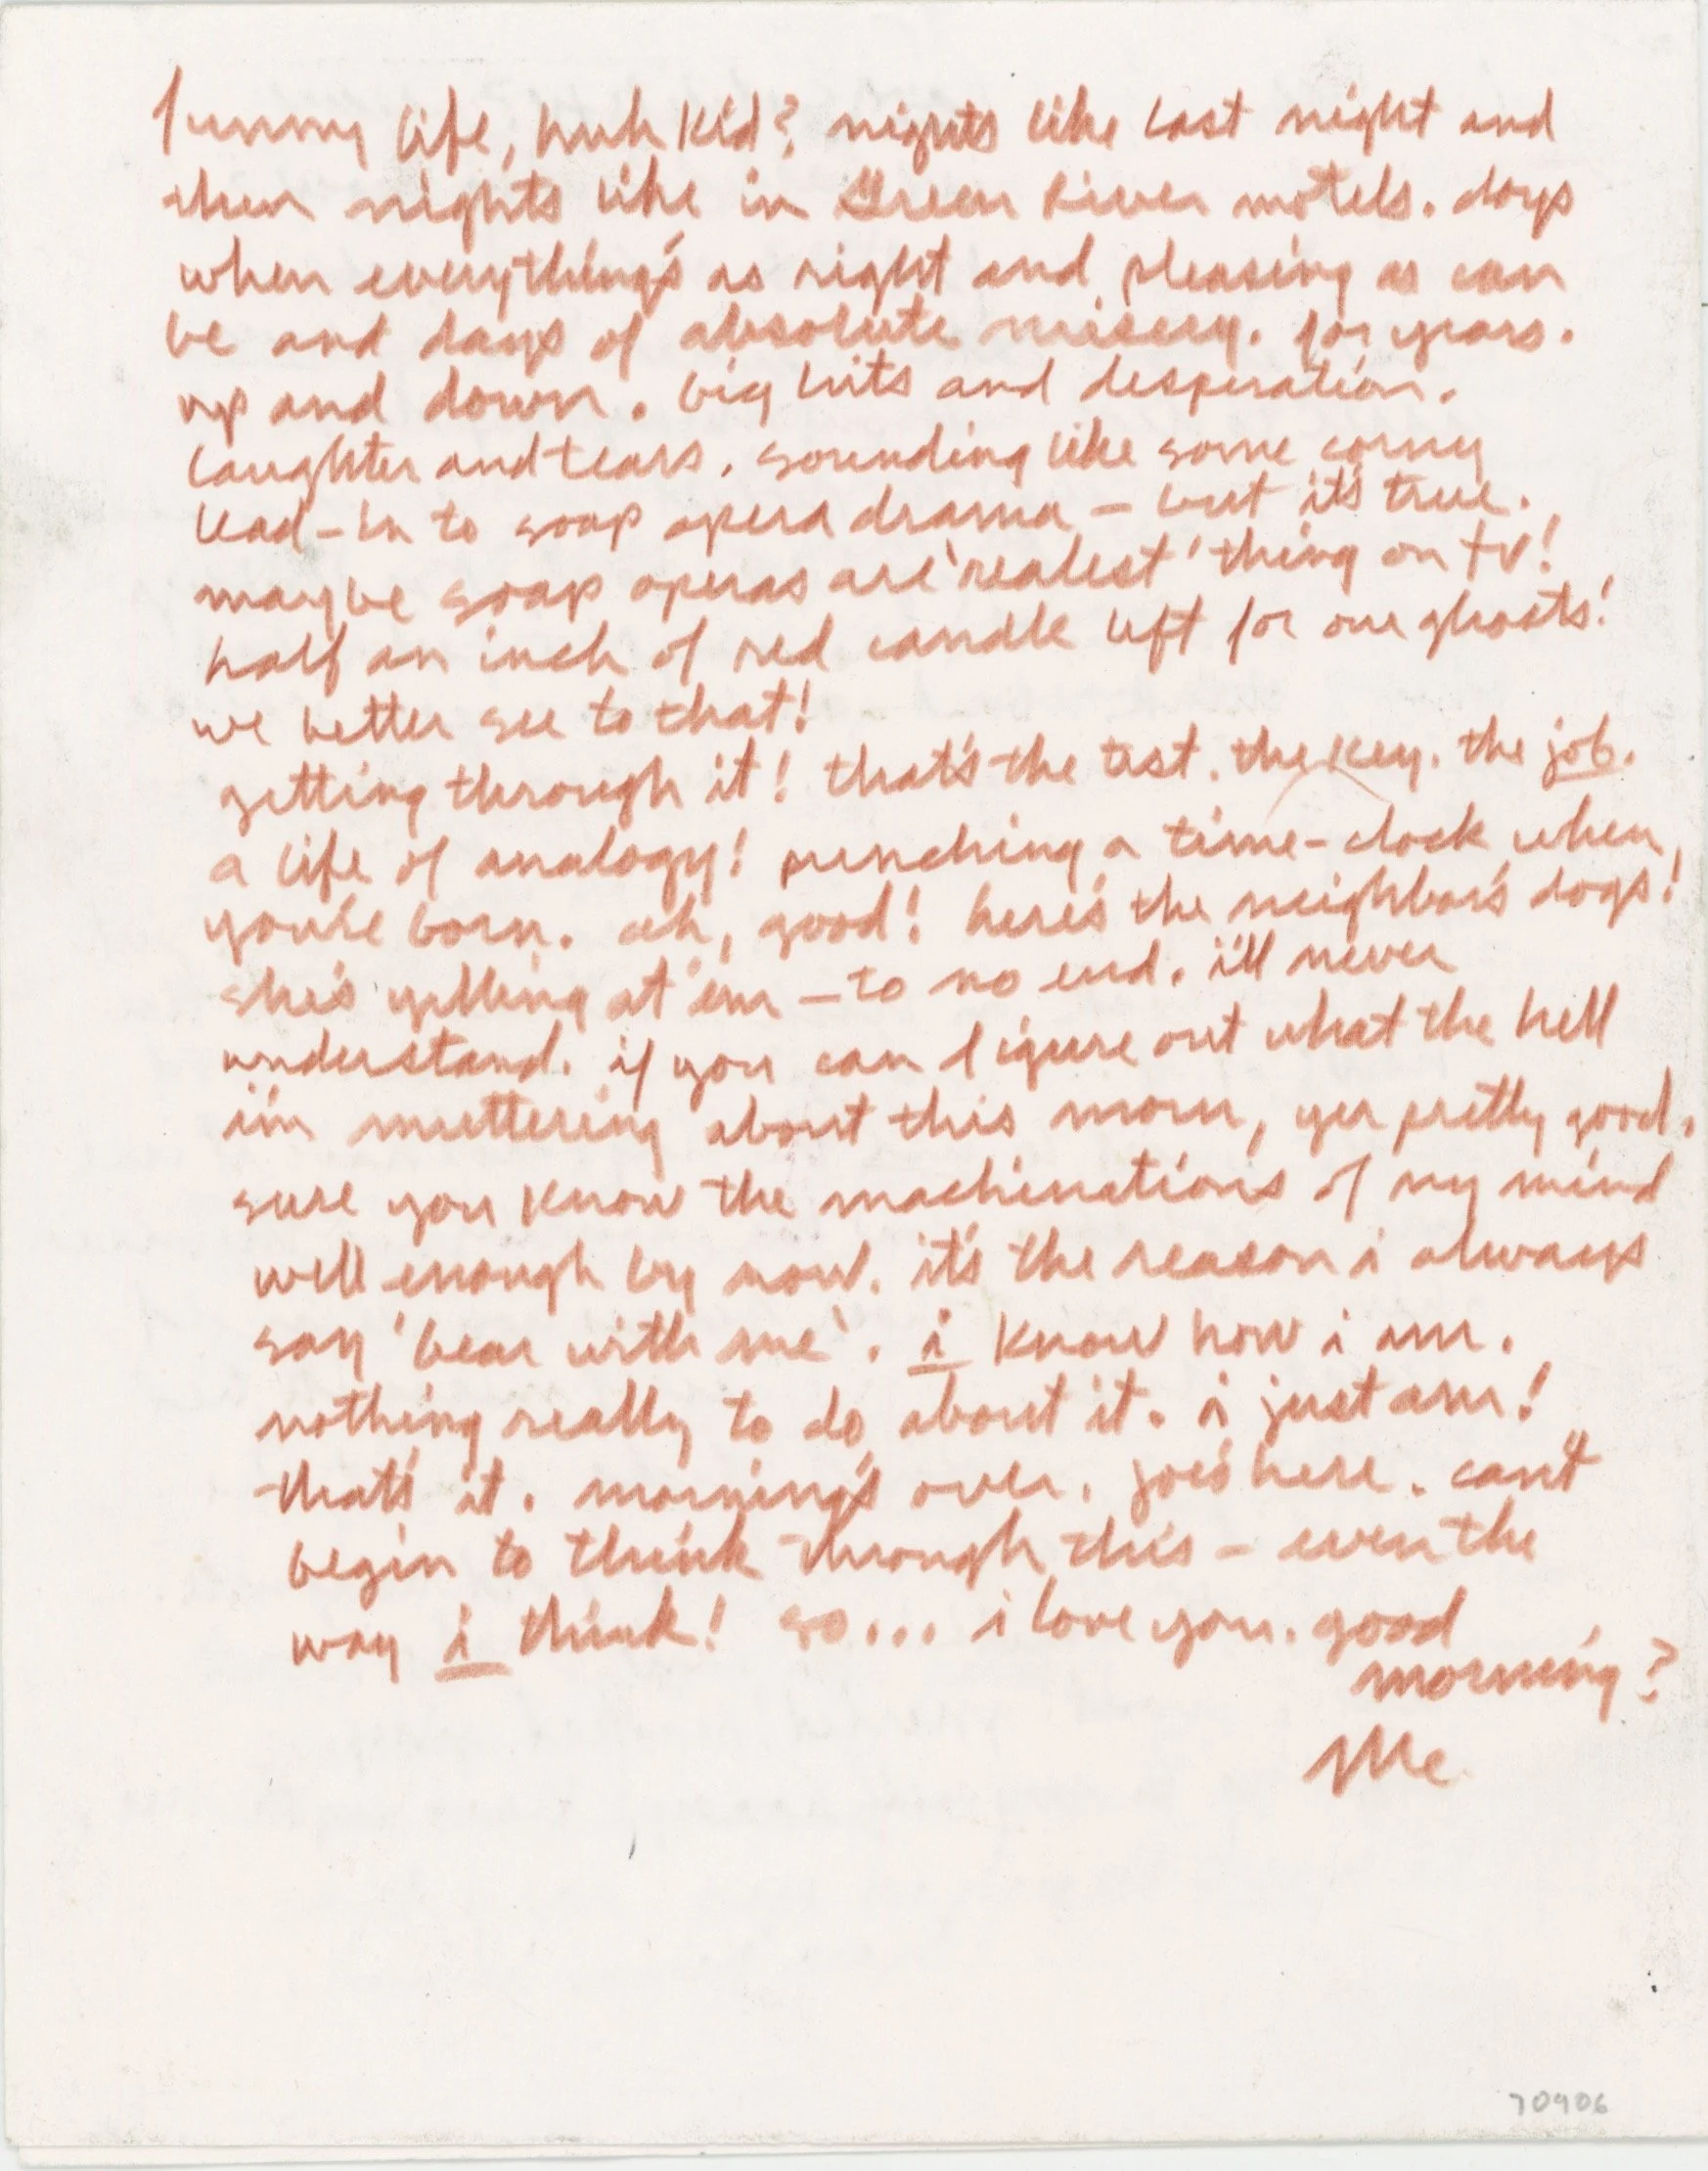 funny life, huh kid? nights like last night and
then nights like in Green River motels. days
when everything's as right and pleasing as can
be and days of absolute misery. for years.
up and down. big hits and desperation.
laughter and tears. sounding like some corny
lead-in to soap opera drama – but it's true.
maybe soap operas are 'realest' thing on tv!
half an inch of red candle left for our ghosts!
we better see to that!
getting through it! that's the test. the key. the job.
a life of analogy! punching a time-clock when
you're born. ah, good! here's the neighbor's dogs!
she's yelling at 'em – to no end. i'll never
understand. if you can figure out what the hell
i'm muttering about this morn, yer pretty good.
sure you know the machinations of my mind
well enough by now. it's the reason i always
say 'bear with me'. i know how i am.
nothing really to do about it. i just am!
that's it. morning's over. joe's here. can't
begin to think through this – even the
way i think! so... i love you. good
morning?
Me
70906